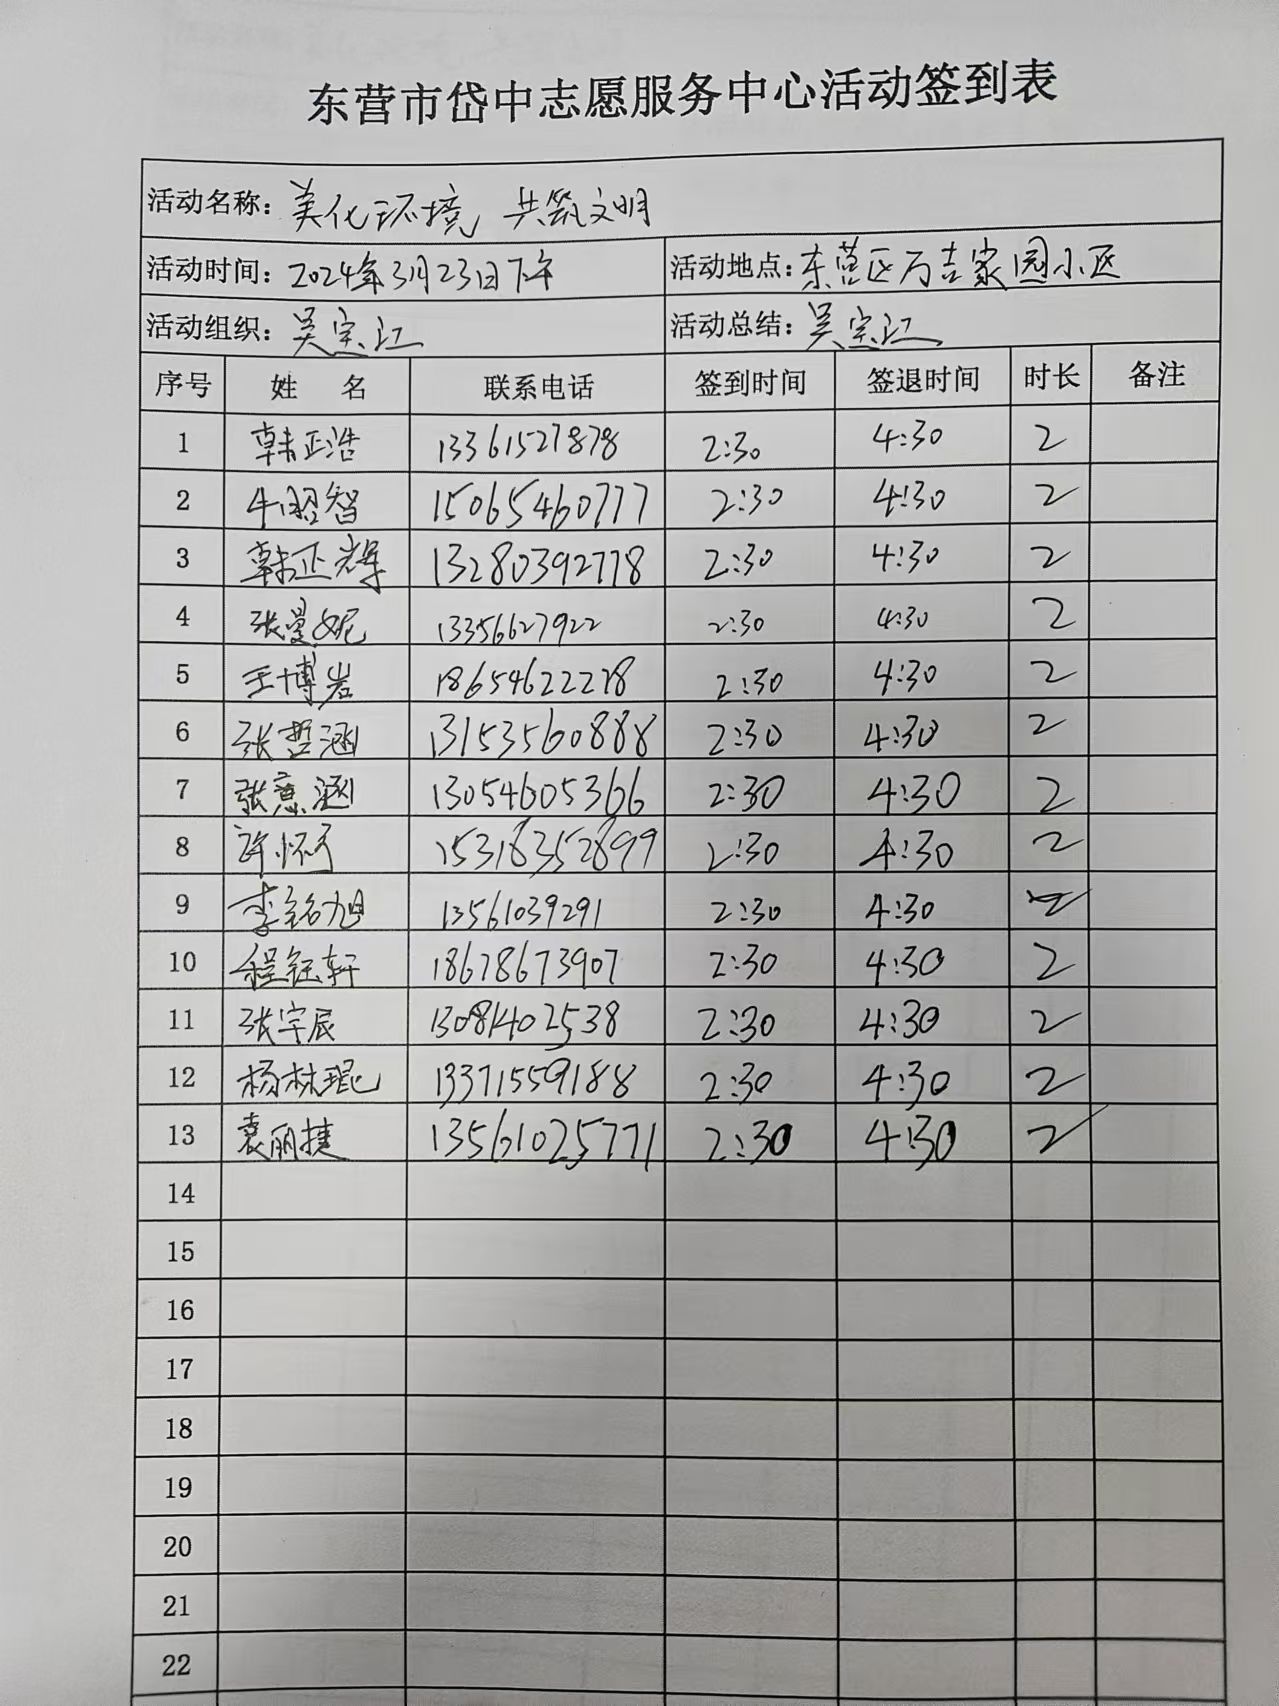 东营市岱中志愿服务中心活动签到表
活动名称: 美化环境 共筑文明
活动时间: 2024年3月23日下午 活动地点: 东营区万吉家园小区
活动组织: 吴宗江 活动总结: 吴宗江
序号 姓 名 联系电话 签到时间 签退时间 时长 备注
1 韩正浩 13361527878 2:30 4:30 2
2 牛曌智 15065460777 2:30 4:30 2
3 韩正辉 13280392778 2:30 4:30 2
4 张曼妮 13356627922 2:30 4:30 2
5 王博岩 18654622278 2:30 4:30 2
6 张哲涵 13153560888 2:30 4:30 2
7 张意涵 13054605366 2:30 4:30 2
8 许怀予 15318352899 2:30 4:30 2
9 李铭旭 13561039291 2:30 4:30 2
10 程钰轩 18678673907 2:30 4:30 2
11 张宇辰 13081402538 2:30 4:30 2
12 杨林琨 13371559188 2:30 4:30 2
13 袁丽捷 13561025771 2:30 4:30 2
14
15
16
17
18
19
20
21
22